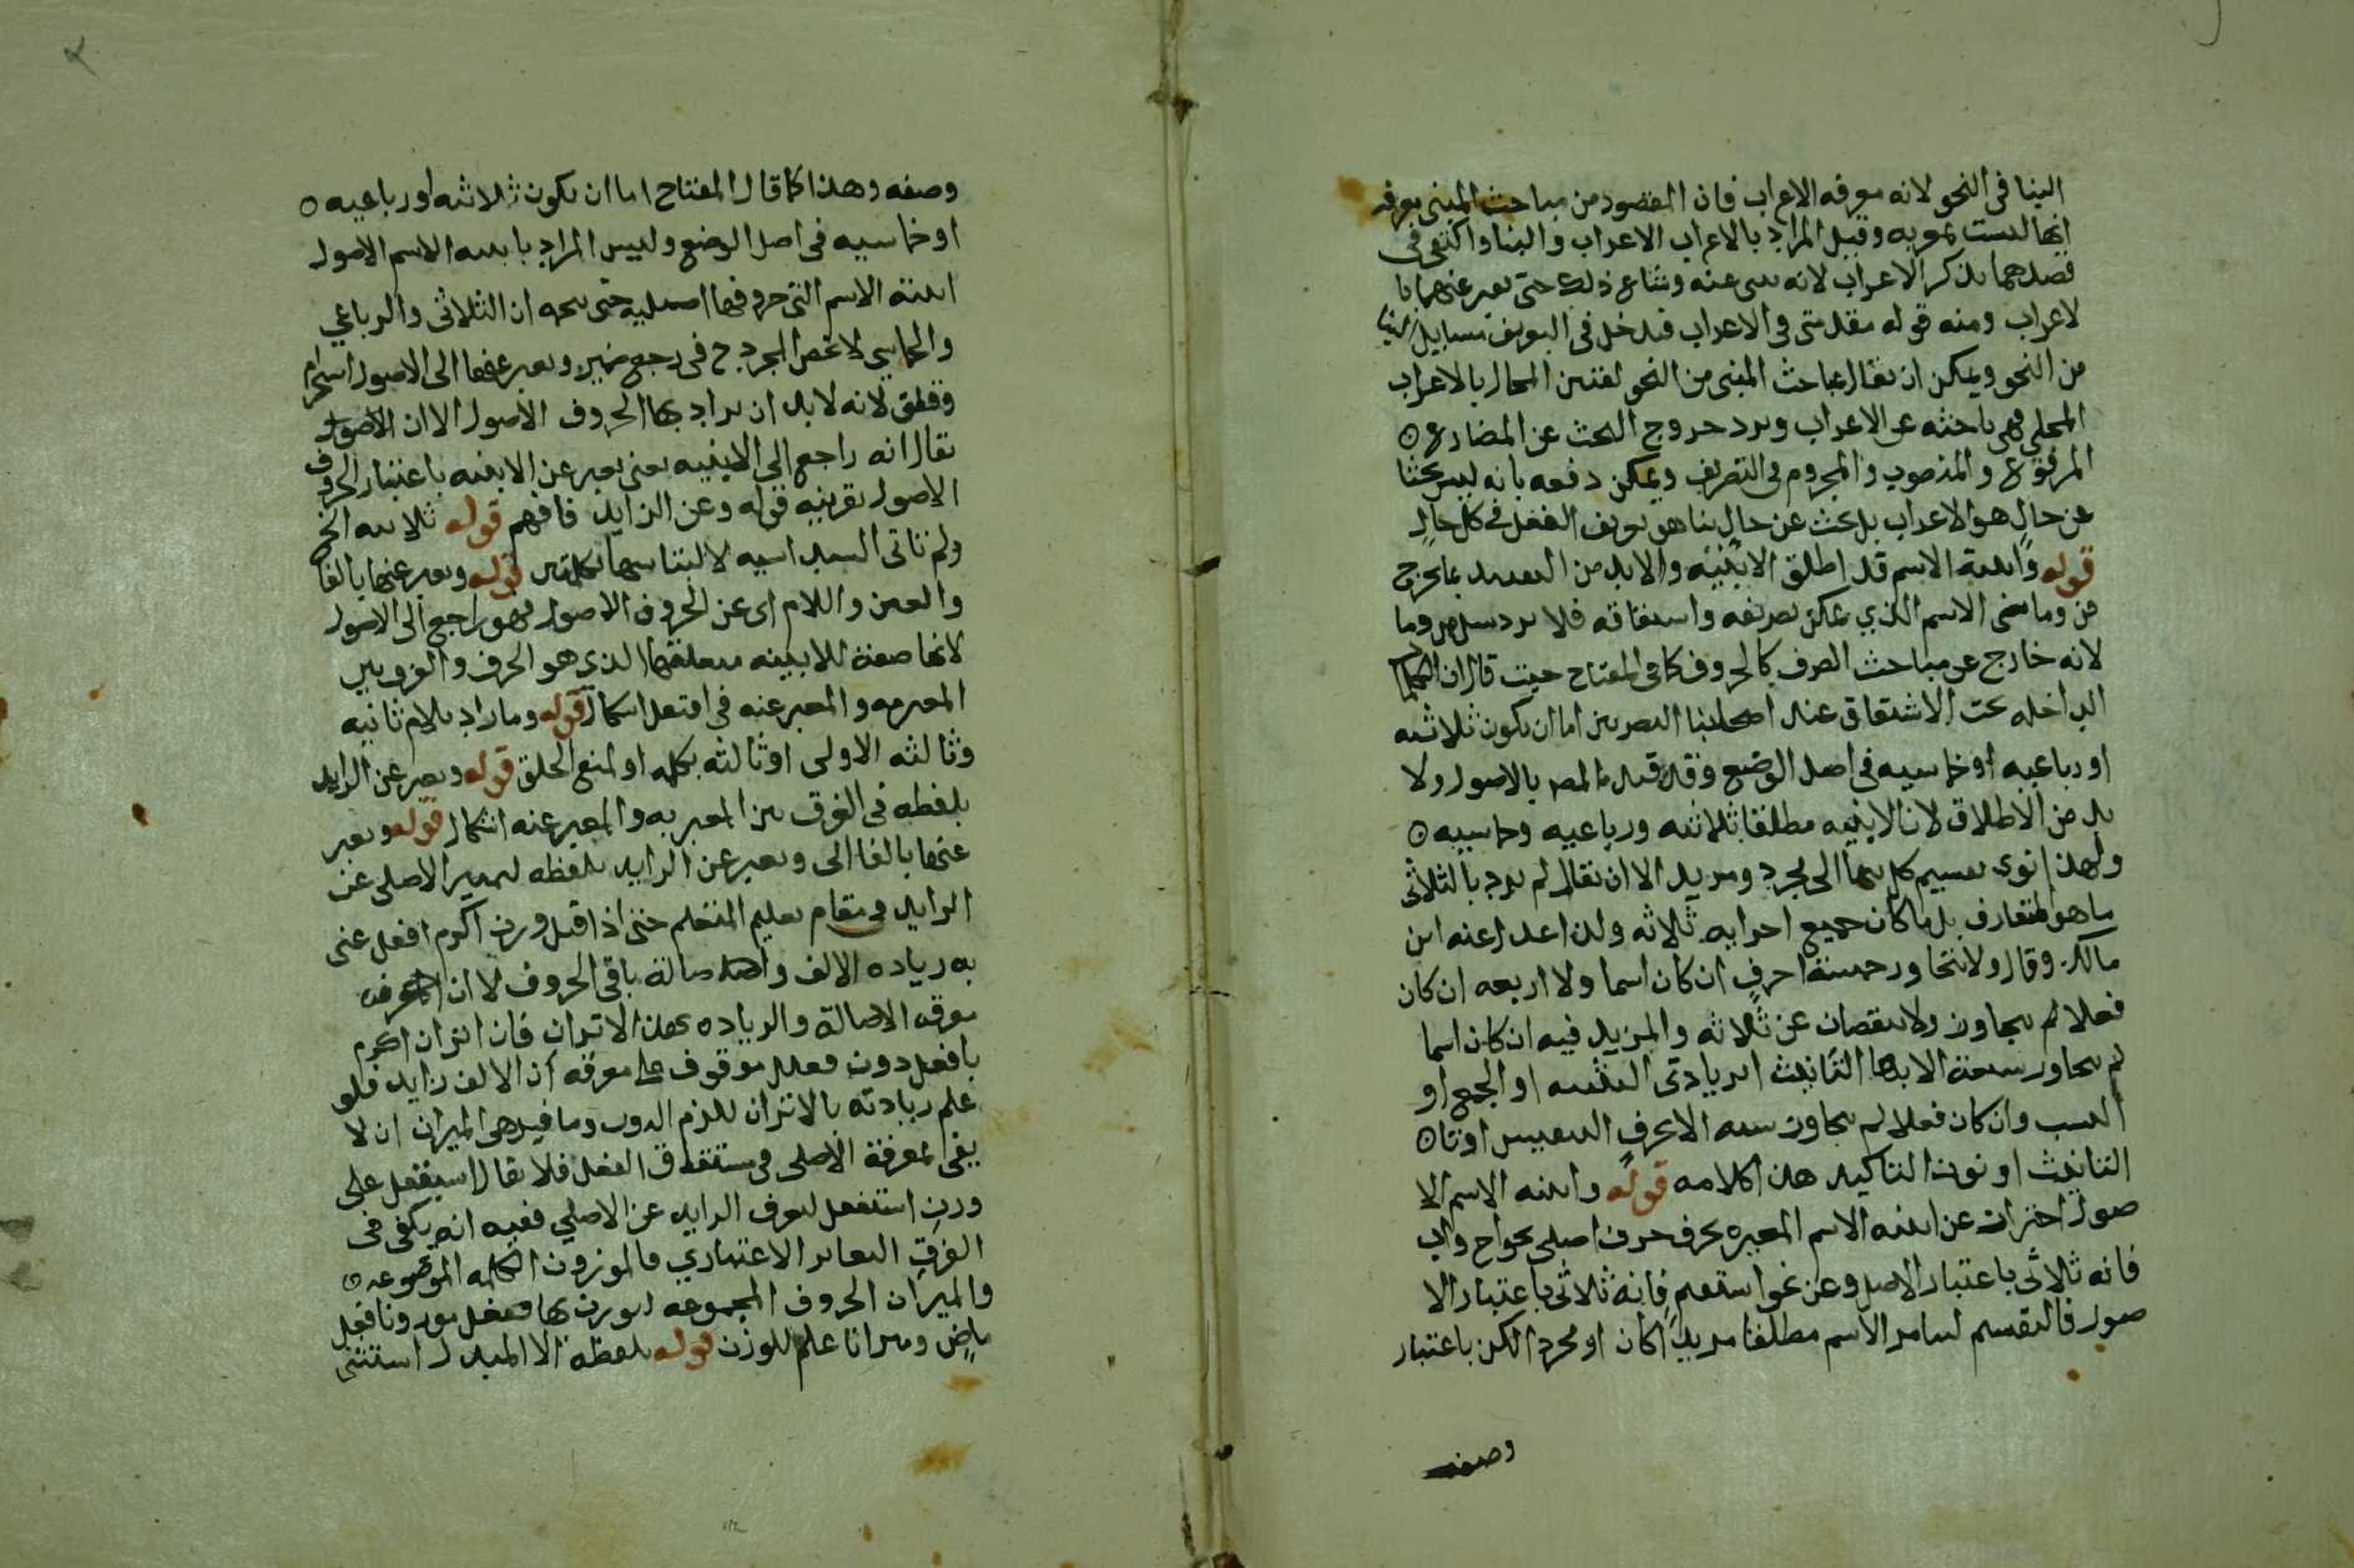 البنا فى النحو لانه معرفه الاعراب فان المقصود من مباحث المبنى معرفه
انها ليست بمعربه وقيل المراد بالاعراب الاعراب والبنا واكتفى فى
فصدهما بذكر الاعراب لانه وشاع ذلك حتى يعبر عنهما با
لاعراب ومنه قوله مقدمتى فى الاعراب فدخل فى التعريف مسايل البنا
من النحو ويمكن ان يقال مباحث المبنى من النحو المحال بالاعراب
المحلى فهى باحثه عن الاعراب ويرد خروج البحث عن المضارع
المرفوع والمنصوب والمجزوم فى التصريف ويمكن دفعه بانه ليس بحثا
عن حال هو الاعراب بل بحث عن حال بنا هو تعريف الفعل فى كل حال
قوله وابنية الاسم قد اطلق الابنيه ولا بد من التقييد بما يخرج
من وما اعنى الاسم الذي يمكن تصريفه واشتقاقه فلا يرد مثل من وما
لانه خارج عن مباحث الصرف كالحروف كما فى المفتاح حيث قال ان الكلم
الداخله تحت الاشتقاق عند اصحابنا البصريين اما ان يكون ثلاثيه
او رباعيه او خماسيه فى اصل الوضع وقد قيد المص بالاصول ولا
بد من الاطلاق لان الابنيه مطلقا ثلاثيه ورباعيه وخماسيه
ولهذا نوى تقسيم كل منها الى مجرد ومزيد الا ان يقال لم يرد بالثلاثى
ما هو المتعارف بل ما كان جميع اجزايه ثلاثه ولذا عدل عنه ابن
مالك وقال ولا يتجاوز خمسة احرف ان كان اسما ولا اربعه ان كان
فعلا لم يتجاوز ولا ينقصان عن ثلاثه والمزيد فيه ان كان اسما
لم يتجاوز سبعة الا بها التانيث او زيادتى التثنيه او الجمع او
النسب وان كان فعلا لم يتجاوز سته الا بحرف التنفيس او تا
التانيث او نون التاكيد هذا كلامه قوله وابنيه الاسم الا
صول احتراز عن ابنيه الاسم المعبره بحرف حرف اصلى نحو اخ واب
فانه ثلاثى باعتبار الاصل وعن نحو استفهم فانه ثلاثى باعتبار الا
صول فالتقسيم لساير الاسم مطلقا مزيدا كان او مجردا لكن باعتبار
وصفه
وصفه وهذا كما قال المفتاح اما ان يكون ثلاثيه او رباعيه
او خماسيه فى اصل الوضع وليس المراد بابنيه الاسم الاصول
ابنية الاسم التى حروفها اصليه حتى يتجه ان الثلاثى والرباعي
والخماسي لا تخص المجرد ح فى رجع ضمير ويعبر عنها الى الاصول استخدام
وقلق لانه لا بد ان يراد بها الحروف الاصول الا ان
يقال انه راجع الى الابنيه يعنى يعبر عن الابنيه باعتبار الحروف
الاصول بقرينه قوله وعن الزايد فافهم قوله ثلاثيه الخ
ولم تاتى السداسيه لالتباسها بكلمتين قوله ويعبر عنها بالفا
والعين واللام اى عن الحروف الاصول فهو راجع الى الاصول
لانها صفة للابنيه متعلقها الذى هو الحرف والفرق بين
المعبر به والمعبر عنه فى افتعل اشكال قوله وما زاد بلام ثانيه
وثالثه الاولى او ثالثه بكلمه او لمنع الخلق قوله ويعبر عن الزايد
بلفظه فى الفرق بين المعبر به والمعبر عنه اشكال قوله ويعبر
عنها بالفا الى ويعبر عن الزايد بلفظه لتمييز الاصلى عن
الزايد فى مقام تعليم المتعلم حتى اذا قيل وزن اكرم افعل عنى
به زياده الالف واصالة باقى الحروف لا ان
معرفه الاصالة والزياده بهذا الاتزان فان اتزان اكرم
بافعل دون فعلل موقوف على معرفه ان الالف زايد فلو
علم زيادته بالاتزان للزم الدور وما فيدهى الميزان ان لا
يفى لمعرفة الاصلى فى مشتقات الفعل فلا يقال استفعل على
وزن استفعل لتعرف الزايد عن الاصلي ففيه انه يكفى فى
الفرق التغاير الاعتباري فالموزون الكلمه الموضوعه
والميزان الحروف المجموعه ليوزن بها ففعل موزونا فعل
ماض وميزانا علم للوزن قوله بلفظه الا المبدل استثنى